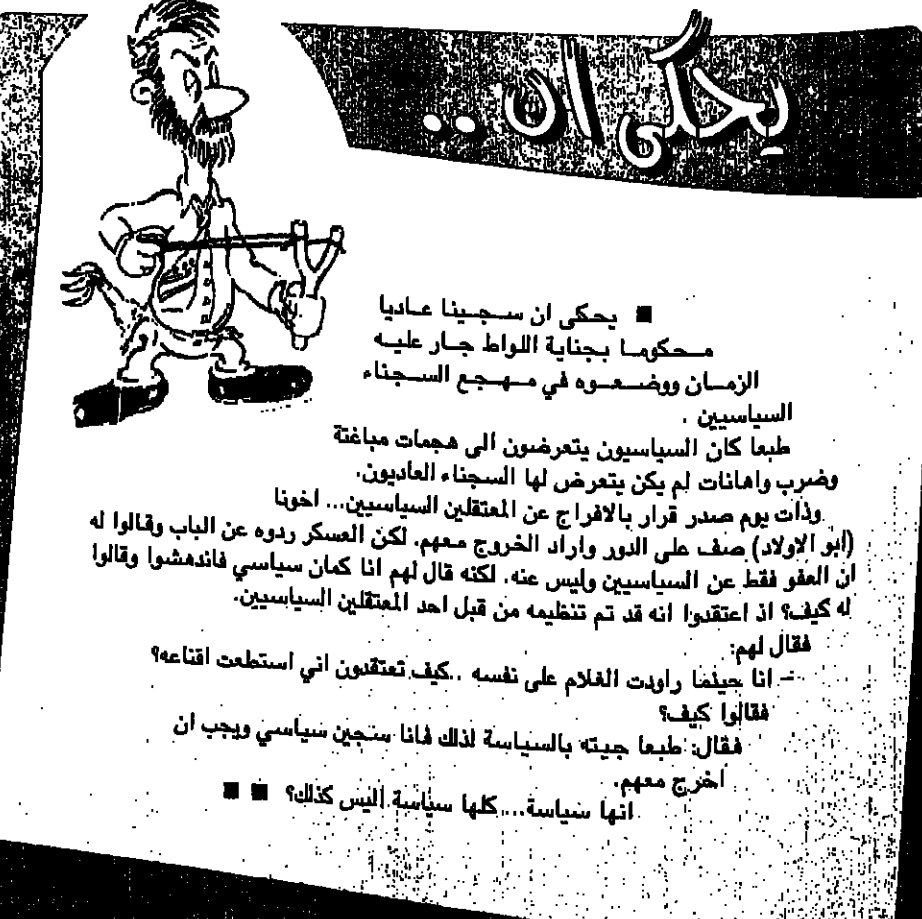 يحكى ان ..
■ يحكى ان سجينا عاديا
محكوما بجناية اللواط جار عليه
الزمان ووضعوه في مهجع السجناء
السياسيين .
طبعا كان السياسيون يتعرضون الى هجمات مباغتة
وضرب واهانات لم يكن يتعرض لها السجناء العاديون.
وذات يوم صدر قرار بالافراج عن المعتقلين السياسيين... اخونا
(ابو الاولاد) صف على الدور واراد الخروج معهم. لكن العسكر ردوه عن الباب وقالوا له
ان العفو فقط عن السياسيين وليس عنه. لكنه قال لهم انا كمان سياسي فاندهشوا وقالوا
له كيف؟ اذ اعتقدوا انه قد تم تنظيمه من قبل احد المعتقلين السياسيين.
فقال لهم:
- انا حينما راودت الغلام على نفسه ..كيف تعتقدون اني استطعت اقناعه؟
فقالوا كيف؟
فقال: طبعا جيته بالسياسة لذلك فانا سجين سياسي ويجب ان
اخرج معهم.
انها سياسة.... كلها سياسة اليس كذلك؟ ■ ■